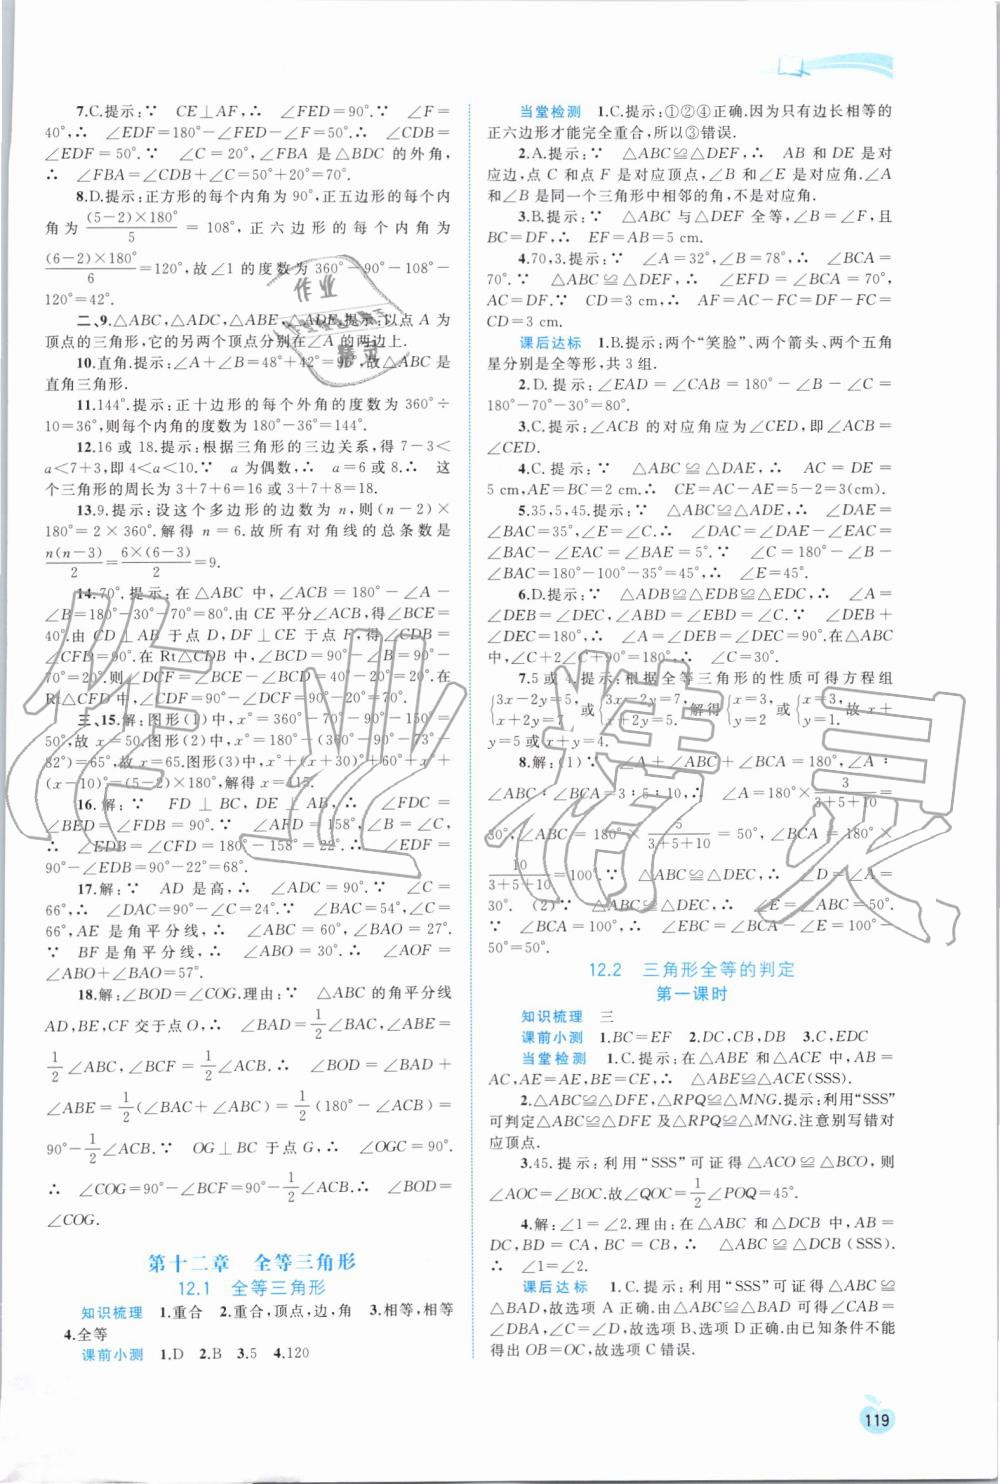 7.C.提示:∵ CE⊥AF,∴ ∠FED=90°.∵ ∠F=
40°,∴ ∠EDF=180°-∠FED-∠F=50°.∴ ∠CDB=
∠EDF=50°.∵ ∠C=20°,∠FBA 是△BDC 的外角,
∴ ∠FBA=∠CDB+∠C=50°+20°=70°.
8.D.提示:正方形的每个内角为 90°,正五边形的每个内
角为 (5-2)×180°/5 =108°,正六边形的每个内角为
(6-2)×180°/6=120°,故∠1 的度数为 360°-90°-108°-
120°=42°.
二、9.△ABC,△ADC,△ABE,△ADE.提示:以点 A 为
顶点的三角形,它的另两个顶点分别在∠A 的两边上.
10.直角.提示:∠A+∠B=48°+42°=90°,故△ABC 是
直角三角形.
11.144°.提示:正十边形的每个外角的度数为 360°÷
10=36°,则每个内角的度数为 180°-36°=144°.
12.16 或 18.提示:根据三角形的三边关系,得 7-3<
a<7+3,即 4<a<10.∵ a 为偶数,∴ a=6或 8.∴ 这
个三角形的周长为 3+7+6=16 或 3+7+8=18.
13.9.提示:设这个多边形的边数为 n,则(n-2)×
180°=2×360°.解得 n=6.故所有对角线的总条数是
n(n-3)/2=6×(6-3)/2=9.
14.70°.提示:在△ABC 中,∠ACB=180°-∠A-
∠B=180°-30°-70°=80°.由 CE 平分∠ACB,得∠BCE=
40°.由 CD⊥AB 于点 D,DF⊥CE 于点 F,得∠CDB=
∠CFD=90°.在 Rt△CDB 中,∠BCD=90°-∠B=90°-
70°=20°.则∠DCF=∠BCE-∠BCD=40°-20°=20°.在
Rt△CFD 中,∠CDF=90°-∠DCF=90°-20°=70°.
三、15.解:图形(1)中,x°=360°-70°-90°-150°=
50°,故 x=50.图形(2)中,x°=180°-(360°-90°-73°-
82°)=65°.故 x=65.图形(3)中,x°+(x+30)°+60°+x°+
(x-10)°=(5-2)×180°,解得 x=115.
16.解:∵ FD⊥BC,DE⊥AB,∴ ∠FDC=
∠BED=∠FDB=90°.∵ ∠AFD=158°,∠B=∠C,
∴ ∠EDB=∠CFD=180°-158°=22°.∴ ∠EDF=
90°-∠EDB=90°-22°=68°.
17.解:∵ AD 是高,∴ ∠ADC=90°.∵ ∠C=
66°,∴ ∠DAC=90°-∠C=24°.∵ ∠BAC=54°,∠C=
66°,AE 是角平分线,∴ ∠ABC=60°,∠BAO=27°.
∵ BF 是角平分线,∴ ∠ABO=30°.∴ ∠AOF=
∠ABO+∠BAO=57°.
18.解:∠BOD=∠COG.理由:∵ △ABC 的角平分线
AD,BE,CF 交于点 O,∴ ∠BAD=1/2∠BAC,∠ABE=
1/2∠ABC,∠BCF=1/2∠ACB.∴ ∠BOD=∠BAD+
∠ABE=1/2(∠BAC+∠ABC)=1/2(180°-∠ACB)=
90°-1/2∠ACB.∵ OG⊥BC 于点 G,∴ ∠OGC=90°.
∴ ∠COG=90°-∠BCF=90°-1/2∠ACB.∴ ∠BOD=
∠COG.
第十二章 全等三角形
12.1 全等三角形
知识梳理 1.重合 2.重合,顶点,边,角 3.相等,相等
4.全等
课前小测 1.D 2.B 3.5 4.120
当堂检测 1.C.提示:①②④正确.因为只有边长相等的
正六边形才能完全重合,所以③错误.
2.A.提示:∵ △ABC≌△DEF,∴ AB 和 DE 是对
应边,点 C 和点 F 是对应顶点,∠B 和∠E 是对应角.∠A
和∠B 是同一个三角形中相邻的角,不是对应角.
3.B.提示:∵ △ABC 与△DEF 全等,∠B=∠F,且
BC=DF,∴ EF=AB=5 cm.
4.70,3.提示:∵ ∠A=32°,∠B=78°,∴ ∠BCA=
70°.∵ △ABC≌△DEF,∴ ∠EFD=∠BCA=70°,
AC=DF.∵ CD=3 cm,∴ AF=AC-CF=DF-CF=
CD=3 cm.
课后达标 1.B.提示:两个“笑脸”、两个箭头、两个五角
星分别是全等形,共 3 组.
2.D.提示:∠EAD=∠CAB=180°-∠B-∠C=
180°-70°-30°=80°.
3.C.提示:∠ACB 的对应角应为∠CED,即∠ACB=
∠CED.
4.C.提示:∵ △ABC≌△DAE,∴ AC=DE=
5 cm,AE=BC=2 cm.∴ CE=AC-AE=5-2=3(cm).
5.35,5,45.提示:∵ △ABC≌△ADE,∴ ∠DAE=
∠BAC=35°,∠E=∠C.∴ ∠DAC=∠DAE-∠EAC=
∠BAC-∠EAC=∠BAE=5°.∵ ∠C=180°-∠B-
∠BAC=180°-100°-35°=45°,∴ ∠E=45°.
6.D.提示:∵ △ADB≌△EDB≌△EDC,∴ ∠A=
∠DEB=∠DEC,∠ABD=∠EBD=∠C.∵ ∠DEB+
∠DEC=180°,∴ ∠A=∠DEB=∠DEC=90°.在△ABC
中,∠C+2∠C+90°=180°.∴ ∠C=30°.
7.5 或 4.提示:根据全等三角形的性质可得方程组
{3x-2y=5, x+2y=7 或{3x-2y=7, x+2y=5. 解得{x=3, y=2 或{x=3, y=1. 故 x+
y=5 或 x+y=4.
8.解:(1)∵ ∠A+∠ABC+∠BCA=180°,∠A∶
∠ABC∶∠BCA=3∶5∶10,∴ ∠A=180°×3/(3+5+10)=
30°,∠ABC=180°×5/(3+5+10)=50°,∠BCA=180°×
10/(3+5+10)=100°.∵ △ABC≌△DEC,∴ ∠D=∠A=
30°. (2)∵ △ABC≌△DEC,∴ ∠E=∠ABC=50°.
∵ ∠BCA=100°,∴ ∠EBC=∠BCA-∠E=100°-
50°=50°.
12.2 三角形全等的判定
第一课时
知识梳理 三
课前小测 1.BC=EF 2.DC,CB,DB 3.C,EDC
当堂检测 1.C.提示:在△ABE 和△ACE 中,AB=
AC,AE=AE,BE=CE,∴ △ABE≌△ACE(SSS).
2.△ABC≌△DFE,△RPQ≌△MNG.提示:利用“SSS”
可判定△ABC≌△DFE 及△RPQ≌△MNG.注意别写错对
应顶点.
3.45.提示:利用“SSS”可证得△ACO≌△BCO,则
∠AOC=∠BOC.故∠QOC=1/2∠POQ=45°.
4.解:∠1=∠2.理由:在△ABC 和△DCB 中,AB=
DC,AC=DB,BC=CB,∴ △ABC≌△DCB(SSS).
∴ ∠1=∠2.
课后达标 1.C.提示:利用“SSS”可证得△ABC≌
△BAD,故选项 A 正确.由△ABC≌△BAD 可得∠CAB=
∠DBA,∠C=∠D,故选项 B、选项 D 正确.由已知条件不能
得出 OB=OC,故选项 C 错误.
119
作业
精灵
作业精灵